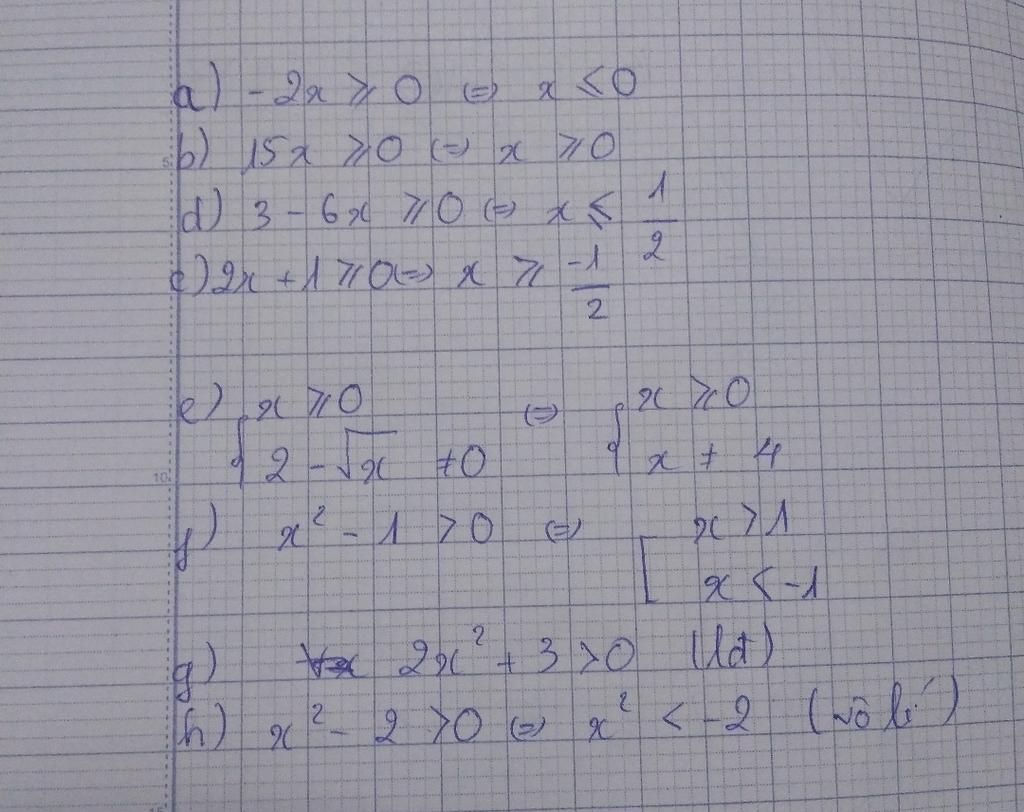 a) -2x ⩾ 0 (=) x ≤ 0
b) 15x ⩾ 0 (=) x ⩾ 0
d) 3 - 6x ⩾ 0 (=) x ≤ 1/2
c) 2x + 1 ⩾ 0 (=) x ⩾ -1/2
e) { x ⩾ 0 (=) { x ⩾ 0
2 - √x ≠ 0 x ≠ 4
f) x² - 1 > 0 (=) [ x > 1
x < -1
g) 2x² + 3 > 0 (lđ)
h) x² - 2 > 0 (=) x² < -2 (vô lí)